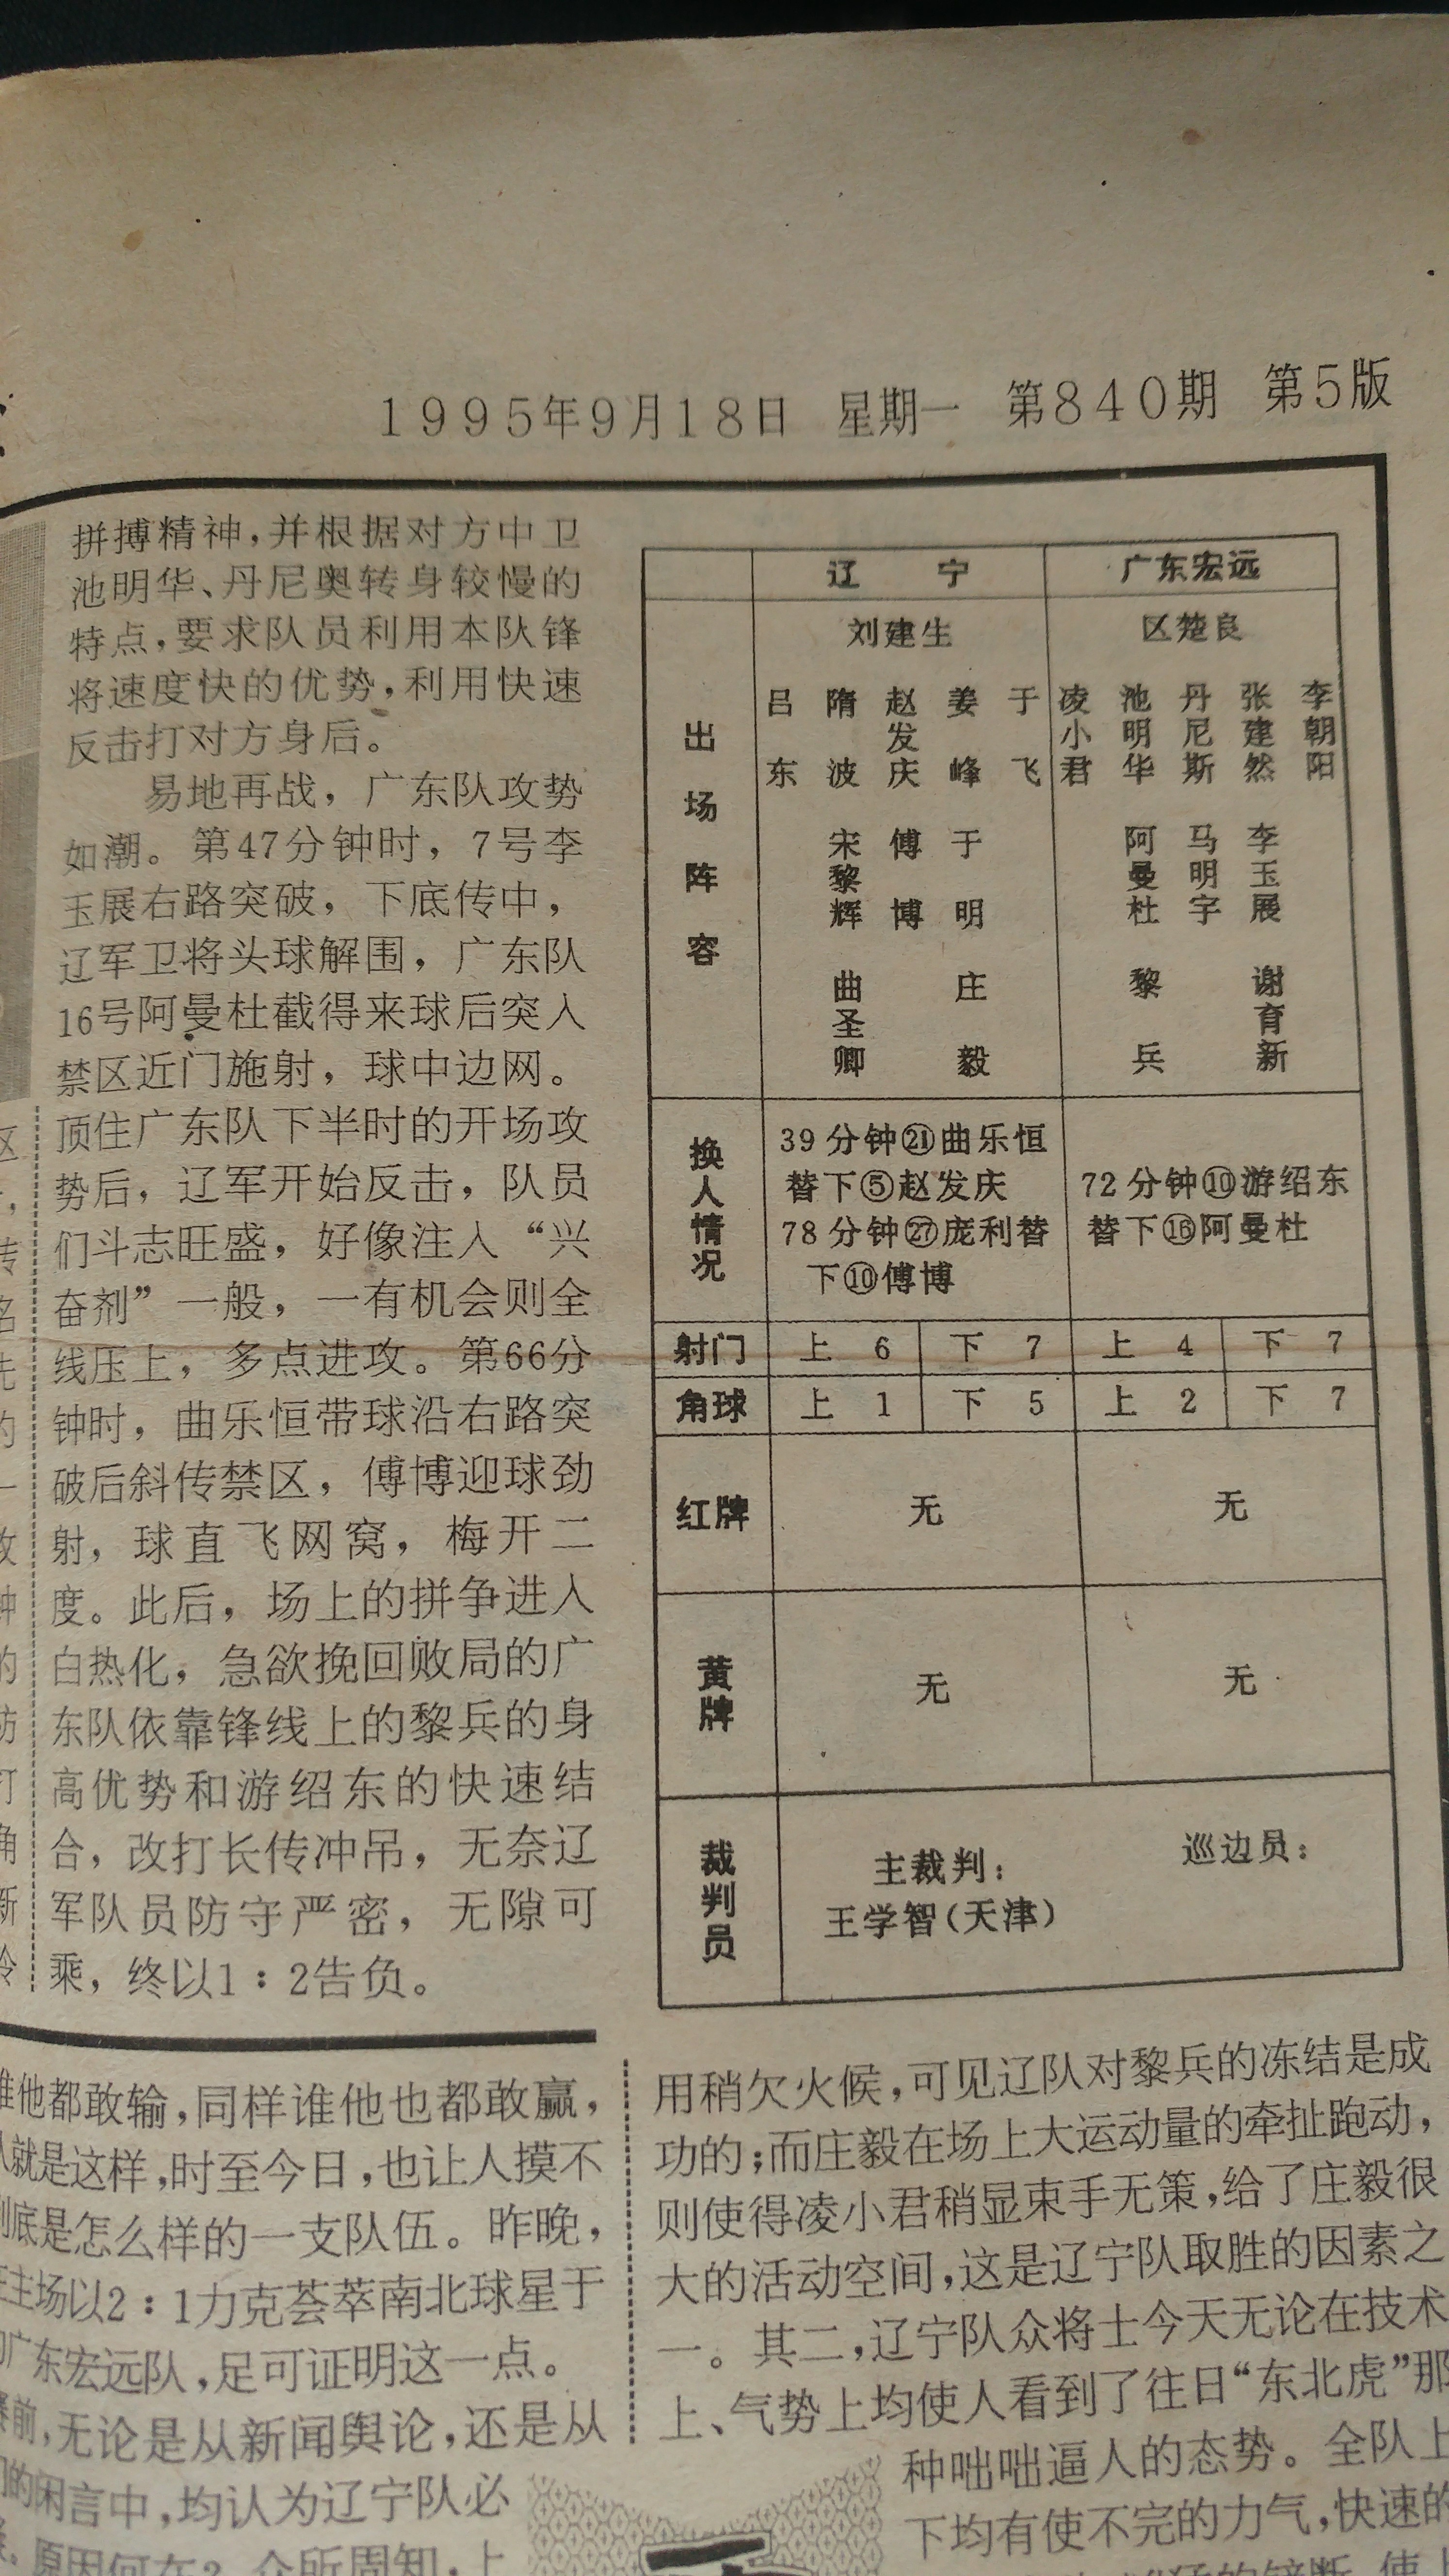 1995年9月18日 星期一 第840期 第5版
拼搏精神,并根据对方中卫
池明华、丹尼奥转身较慢的
特点,要求队员利用本队锋
将速度快的优势,利用快速
反击打对方身后。
易地再战，广东队攻势
如潮。第47分钟时，7号李
玉展右路突破，下底传中，
辽军卫将头球解围，广东队
16号阿曼杜截得来球后突入
禁区近门施射，球中边网。
顶住广东队下半时的开场攻
势后，辽军开始反击，队员
们斗志旺盛，好像注入“兴
奋剂”一般，一有机会则全
线压上，多点进攻。第66分
钟时，曲乐恒带球沿右路突
破后斜传禁区，傅博迎球劲
射，球直飞网窝，梅开二
度。此后，场上的拼争进入
白热化，急欲挽回败局的广
东队依靠锋线上的黎兵的身
高优势和游绍东的快速结
合，改打长传冲吊，无奈辽
军队员防守严密，无隙可
乘，终以1：2告负。
辽宁 广东宏远
出场阵容
刘建生 区楚良
吕东 隋波 赵发庆 姜峰 于飞 凌小君 池明华 丹尼斯 张建然 李朝阳
宋黎辉 傅博 于明 阿曼杜 马明宇 李玉展
曲圣卿 庄毅 黎兵 谢育新
换人情况
39分钟㉑曲乐恒
替下⑤赵发庆
78分钟㉗庞利替
下⑩傅博
72分钟⑩游绍东
替下⑯阿曼杜
射门 上 6 下 7 上 4 下 7
角球 上 1 下 5 上 2 下 7
红牌 无 无
黄牌 无 无
裁判员
主裁判： 巡边员：
王学智(天津)
他都敢输,同样谁他也都敢赢,
就是这样,时至今日,也让人摸不
底是怎么样的一支队伍。昨晚,
主场以2：1力克荟萃南北球星于
广东宏远队,足可证明这一点。
前,无论是从新闻舆论,还是从
的闲言中,均认为辽宁队必
原因何在?众所周知,上
用稍欠火候,可见辽队对黎兵的冻结是成
功的;而庄毅在场上大运动量的牵扯跑动,
则使得凌小君稍显束手无策,给了庄毅很
大的活动空间,这是辽宁队取胜的因素之
一。其二,辽宁队众将士今天无论在技术
上、气势上均使人看到了往日“东北虎”那
种咄咄逼人的态势。全队上
下均有使不完的力气,快速的